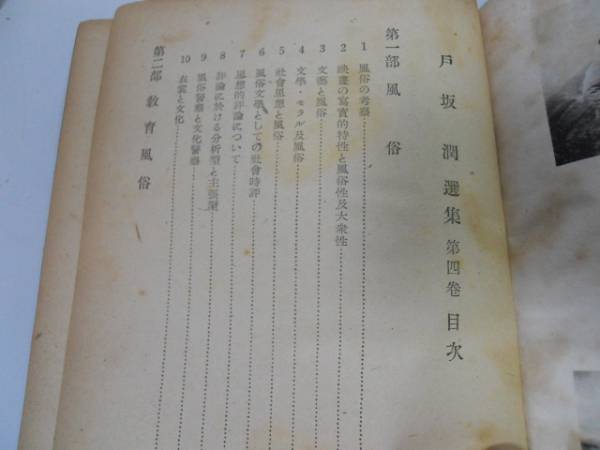 戸坂潤選集 第四卷 目次
第一部 風俗
1 風俗の考察
2 映畫の寫實的特性と風俗性及大衆性
3 文藝と風俗
4 文學・モラル及風俗
5 社會思想と風俗
6 風俗文學としての社會時評
7 思想的評論について
8 評論に於ける分析型と主張型
9 風俗警察と文化警察
10 衣裳と文化
第二部 教育風俗